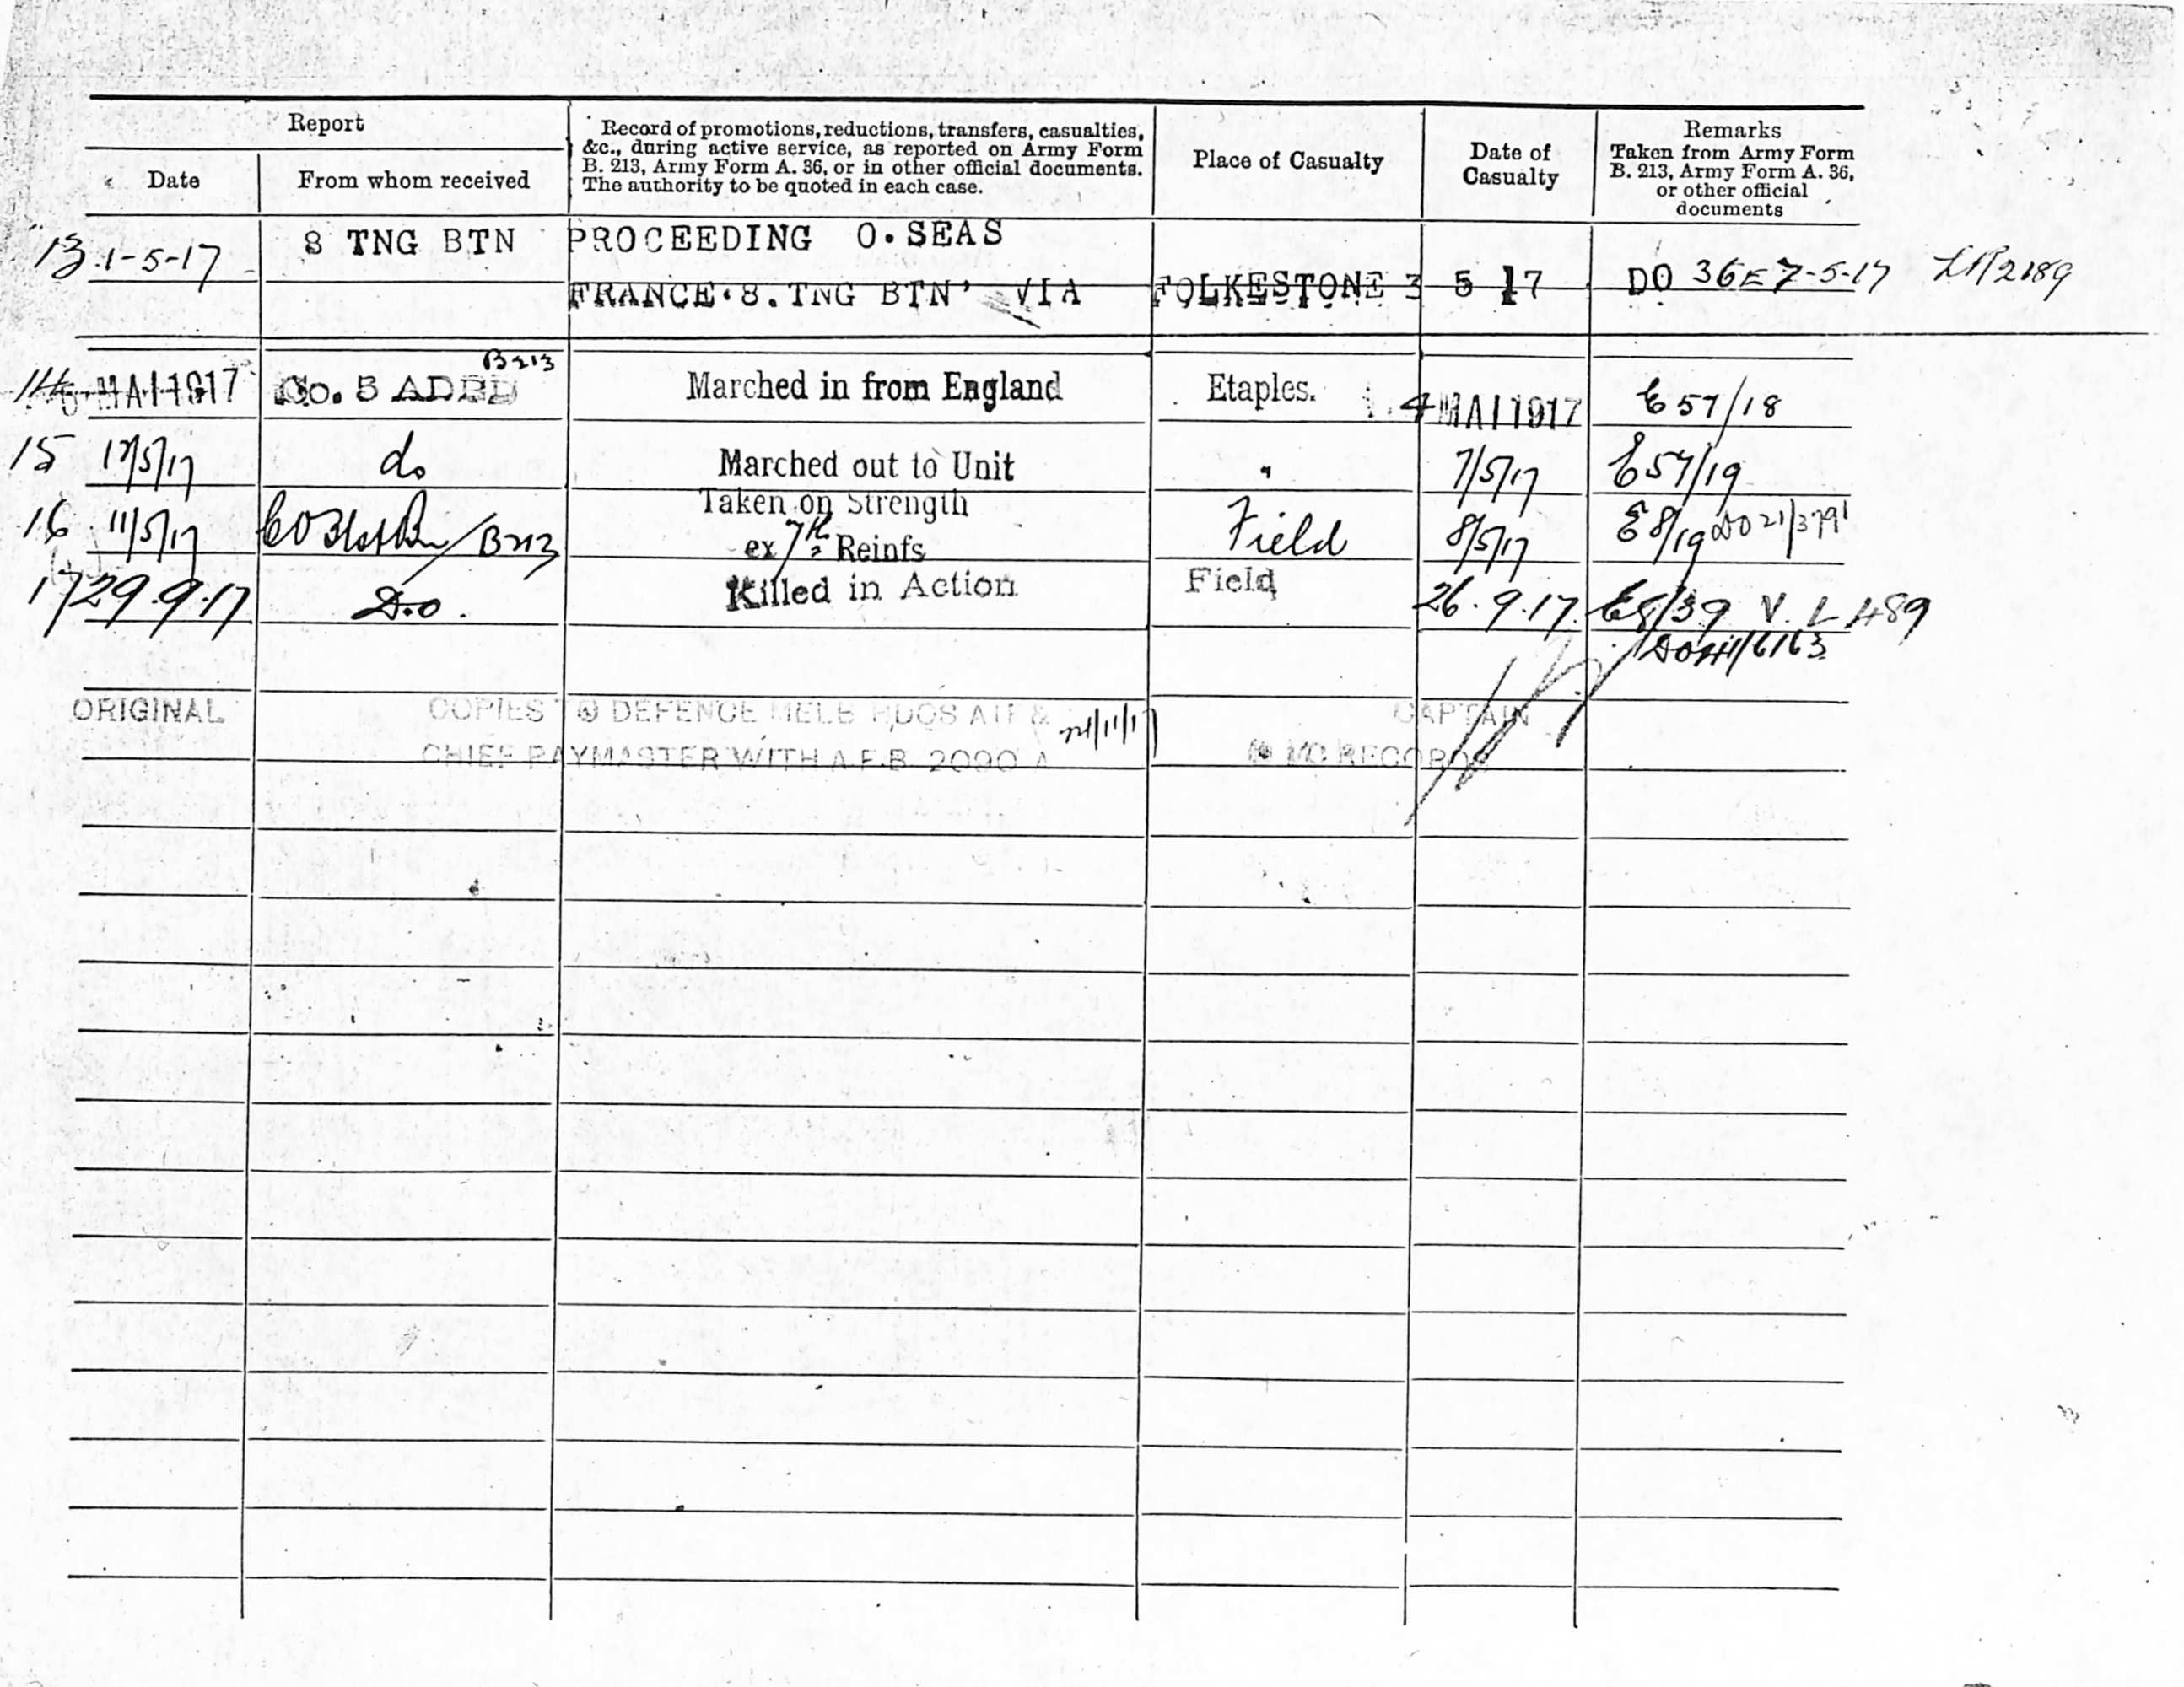 Report
Record of promotions, reductions, transfers, casualties,
&c., during active service, as reported on Army Form
B. 213, Army Form A. 36, or in other official documents.
The authority to be quoted in each case.
Place of Casualty
Date of
Casualty
Remarks
Taken from Army Form
B. 213, Army Form A. 36,
or other official
documents
Date
From whom received
13 1-5-17 8 TNG BTN PROCEEDING O. SEAS
FRANCE. 8. TNG BTN VIA FOLKESTONE 3 5 17 DO 36E 7-5-17
B213
MAI 1917 Co. 5 Marched in from England Etaples. 4 MAI 1917 E 57/18
15 17/5/17 do Marched out to Unit " 7/5/17 E57/19
16 11/5/17 B213 Taken on Strength
ex 7th Reinfs Field 8/5/17 E8/19 DO 21/3791
17 29.9.17 D.o. Killed in Action Field 26.9.17. E8/39 V. L 489
ORIGINAL COPIES TO DEFENCE MELB HDQS AIF & CAPTAIN
CHIEF PAYMASTER WITH A.F.B. 2090 A RECORDS